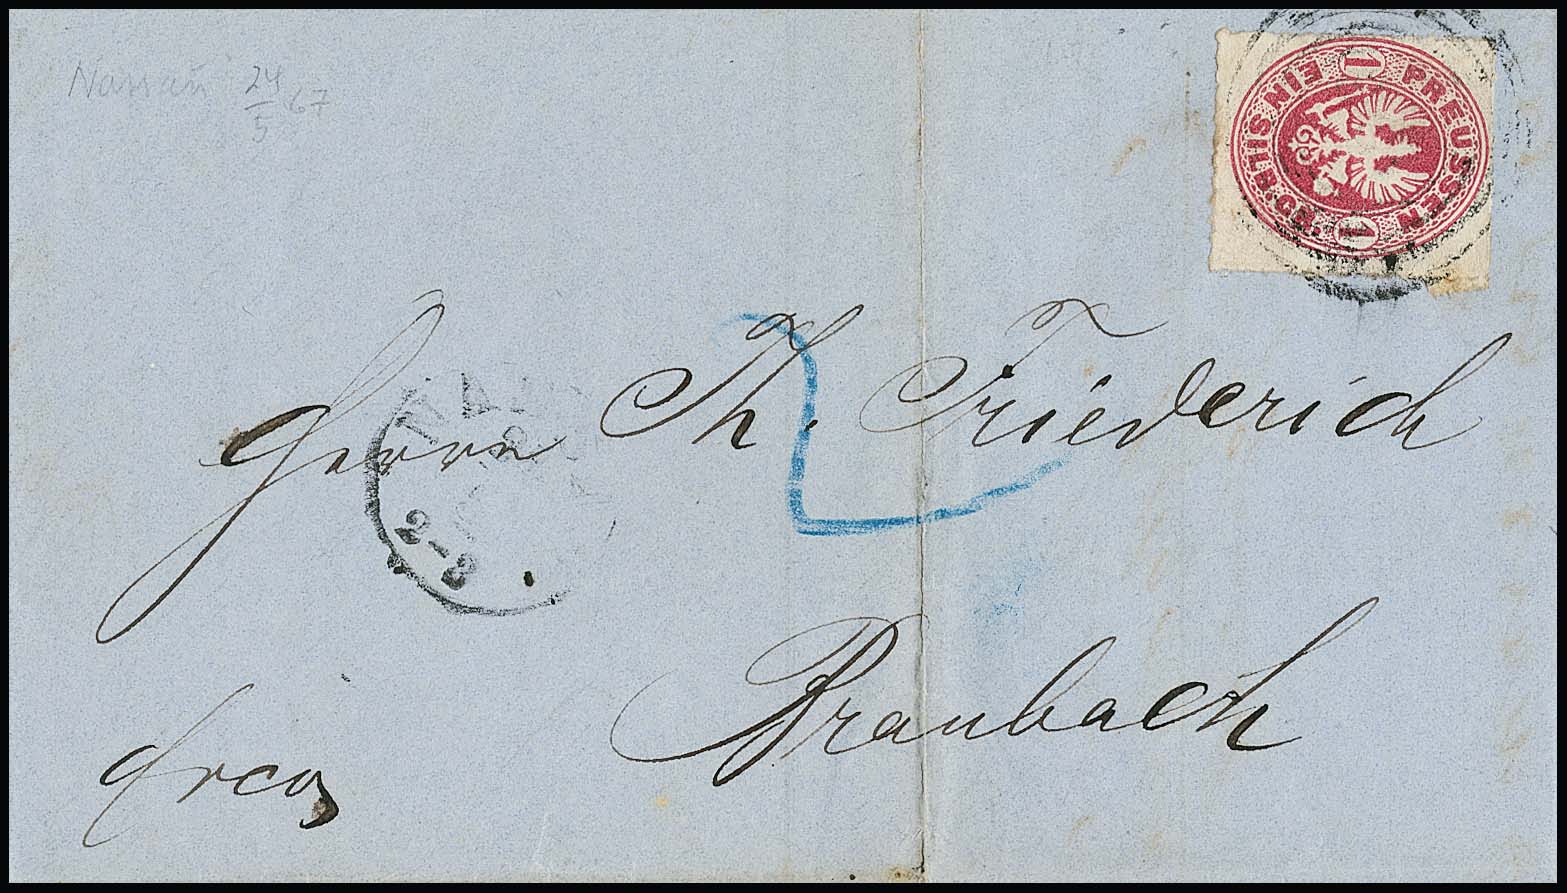 Nassau 24/5 67
PREUSSEN 1 EIN SILB.GR. 1
Herrn Th. Friederich
NA
2-3
2
Braubach
frco